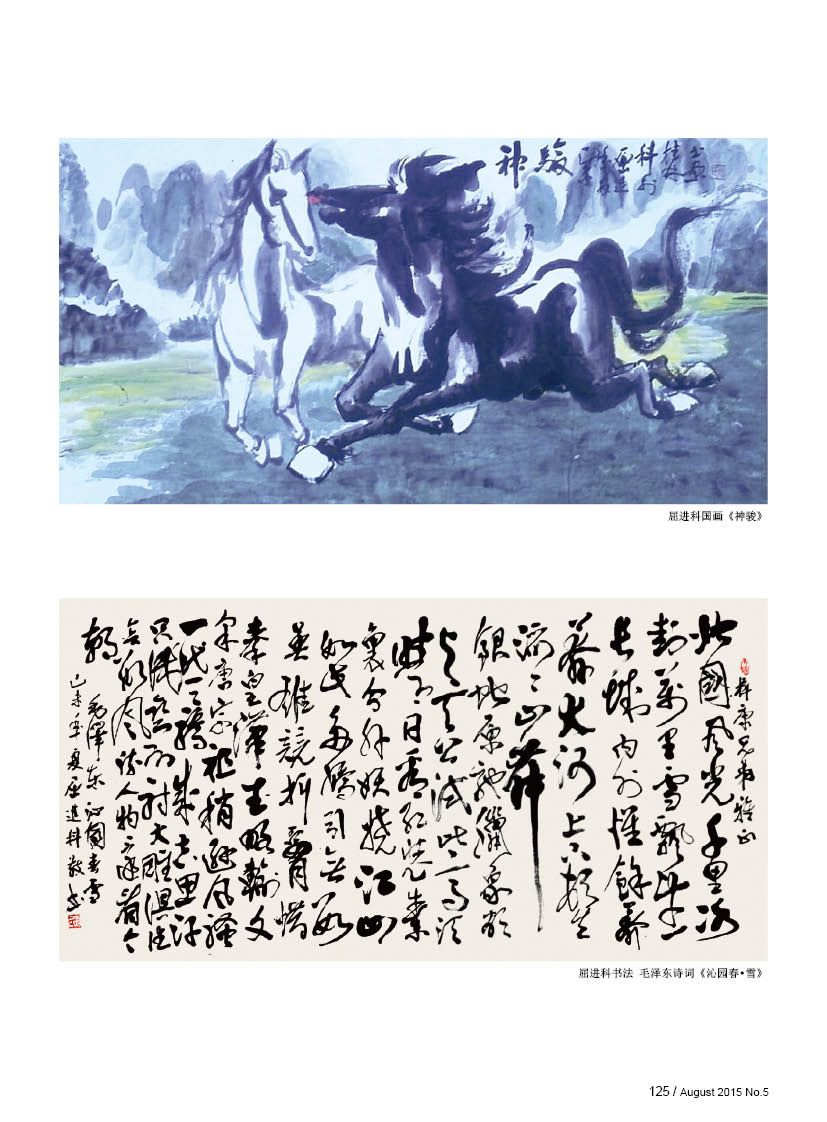 神駿
屈进科国画《神骏》
康兄弟雅正
北國風光千里冰
封萬里雪飄望
長城内外惟餘莽
莽大河上下頓失
滔滔山舞
銀蛇原馳蠟象欲
與天公試比高須
晴日看紅裝素
裹分外妖嬈江山
如此多嬌引無數
英雄競折腰惜
秦皇漢武略輸文
采唐宗祖稍遜風騷
一代天驕成吉思汗
只識彎弓射大雕俱往
矣數風流人物還看今
朝
毛澤東沁園春雪
己未年夏屈進科敬書
屈进科书法 毛泽东诗词《沁园春•雪》
125 / August 2015 No.5